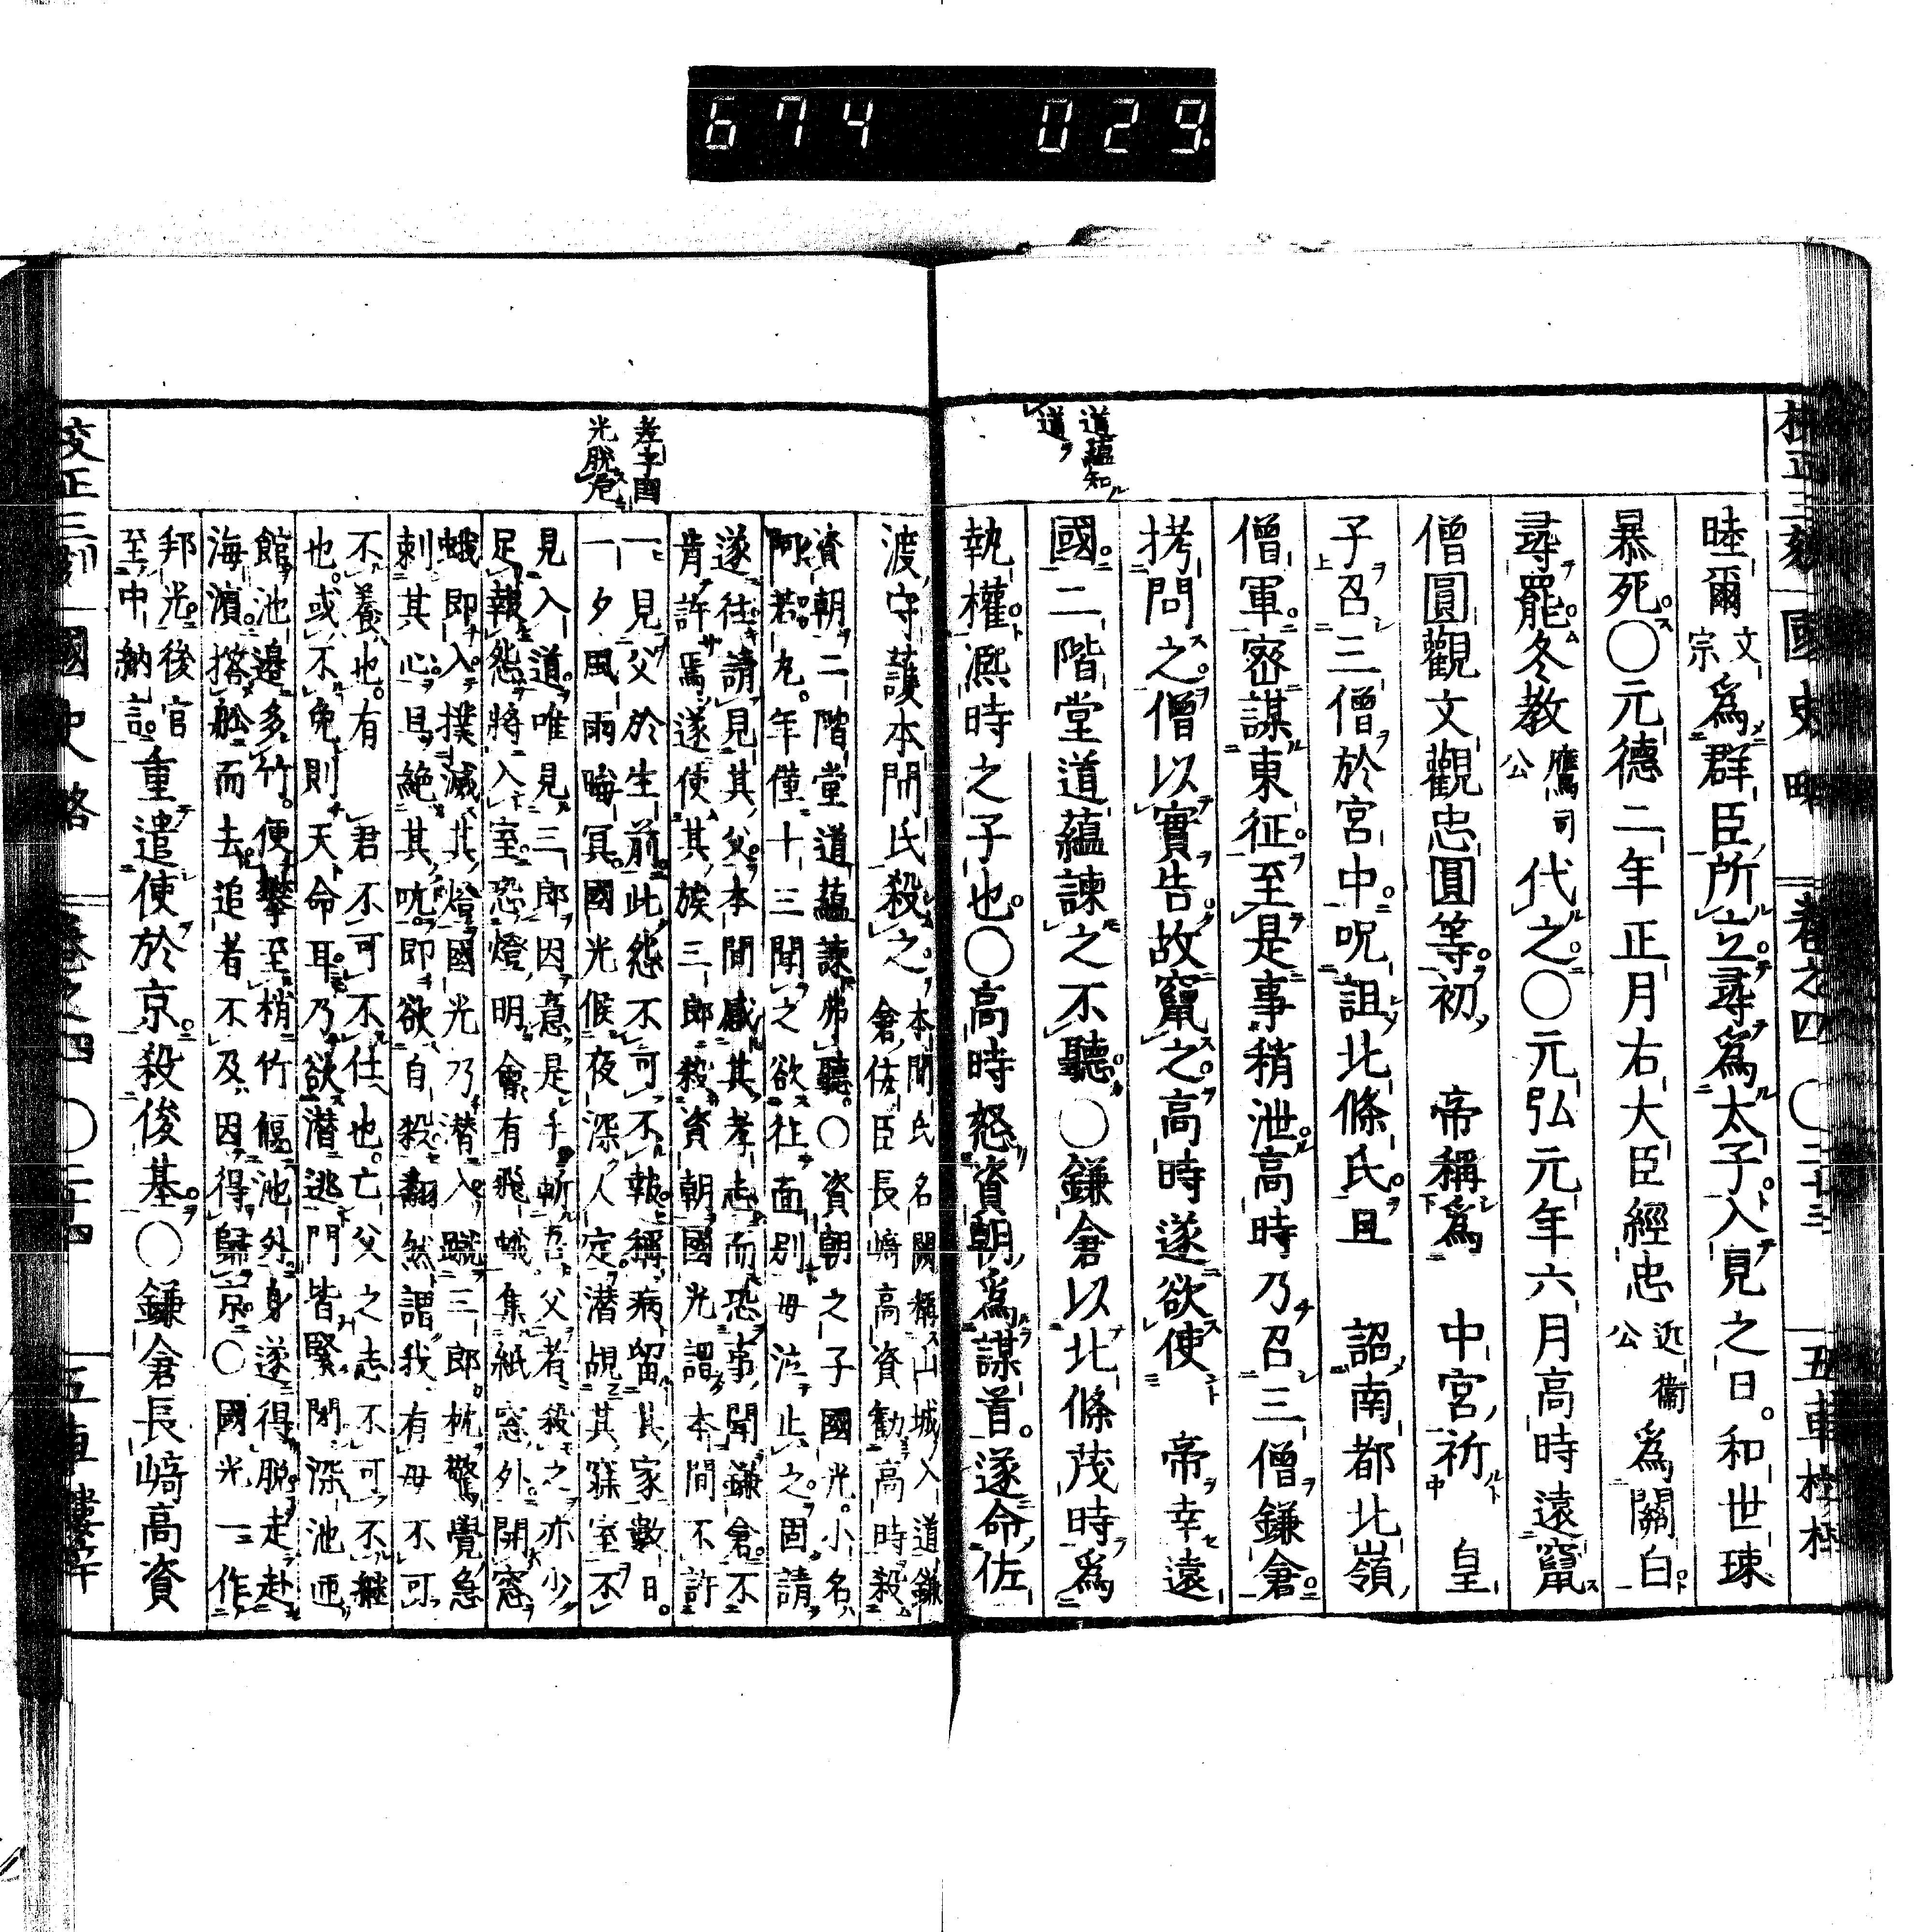 674 029
校正三刻 國史略 卷之四 〇二十三 五車樓梓
道蘊知
道
睦爾文宗爲群臣所立尋爲太子入見之日和世㻋
暴死〇元德二年正月右大臣經忠近衞公爲關白
尋罷冬教鷹司公代之〇元弘元年六月高時遠竄
僧圓觀文觀忠圓等初 帝稱爲 中宮祈 皇
子召三僧於宮中呪詛北條氏且 詔南都北嶺
僧軍密謀東征至是事稍泄高時乃召三僧鎌倉
拷問之僧以實告故竄之高時遂欲使 帝幸遠
國二階堂道蘊諫之不聽〇鎌倉以北條茂時爲
執權凞時之子也〇高時怒資朝爲謀首遂命佐
孝子國
光脫危
渡守護本間氏殺之本間氏名闕稱山城入道鎌
倉佐臣長崎高資勸高時殺
資朝二階堂道蘊諫弗聽〇資朝之子國光小名
阿若丸年僅十三聞之欲往面別母泣止之固請
遂往請見其父本間感其孝志而恐事聞鎌倉不
肯許焉遂使其族三郎殺資朝國光謂本間不許
一見父於生前此怨不可不報稱病留其家數日
一夕風雨晦冥國光候夜深人定潛覘其寐室不
見入道唯見三郎因意是手斬吾父者殺之亦少
足報怨將入室恐燈明會有飛蛾集紙窓外開窓
蛾即入撲滅其燈國光乃潛入蹴三郎枕驚覺急
刺其心且絕其吭即欲自殺翻然謂我有母不可
不養也有 君不可不仕也亡父之志不可不繼
也或不免則天命耳乃欲潛逃門皆緊閉深池匝
館池邊多竹便攀至梢竹偃池外身遂得脫走赴
海濱搭船而去追者不及因得歸京〇國光一作
邦光後官
至中納言重遣使於京殺俊基〇鎌倉長崎高資
校正三刻 國史略 卷之四 〇二十四 五車樓梓